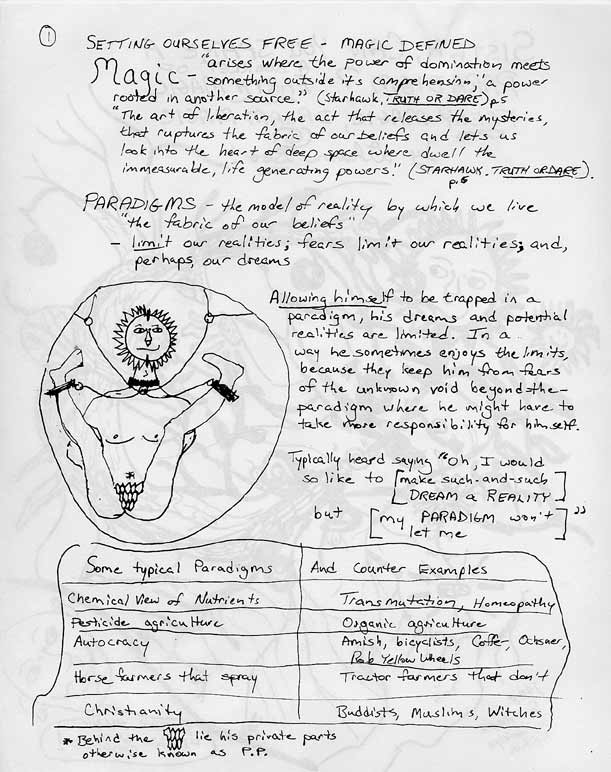 1
SETTING OURSELVES FREE - MAGIC DEFINED
Magic - "arises where the power of domination meets
something outside its comprehension," "a power
rooted in another source." (Starhawk, TRUTH OR DARE) p5
"The art of liberation, the act that releases the mysteries,
that ruptures the fabric of our beliefs and lets us
look into the heart of deep space where dwell the
immeasurable, life generating powers." (STARHAWK, TRUTH OR DARE).
p.6
PARADIGMS - the model of reality by which we live
"the fabric of our beliefs"
- limit our realities; fears limit our realities; and,
perhaps, our dreams
Allowing himself to be trapped in a
paradigm, his dreams and potential
realities are limited. In a
way he sometimes enjoys the limits,
because they keep him from fears
of the unknown void beyond-the-
paradigm where he might have to
take more responsibility for himself.
Typically heard saying "Oh, I would
so like to [make such-and-such
DREAM a REALITY]
but [my PARADIGM won't
let me]"
*
Some typical Paradigms And Counter Examples
Chemical View of Nutrients Transmutation, Homeopathy
Pesticide agriculture Organic agriculture
Autocracy Amish, bicyclists, Coffer, Ochsner,
Bob Yellow Wheels
Horse farmers that spray Tractor farmers that don't
Christianity Buddists, Muslims, Witches
* Behind the lie his private parts
otherwise known as P.P.